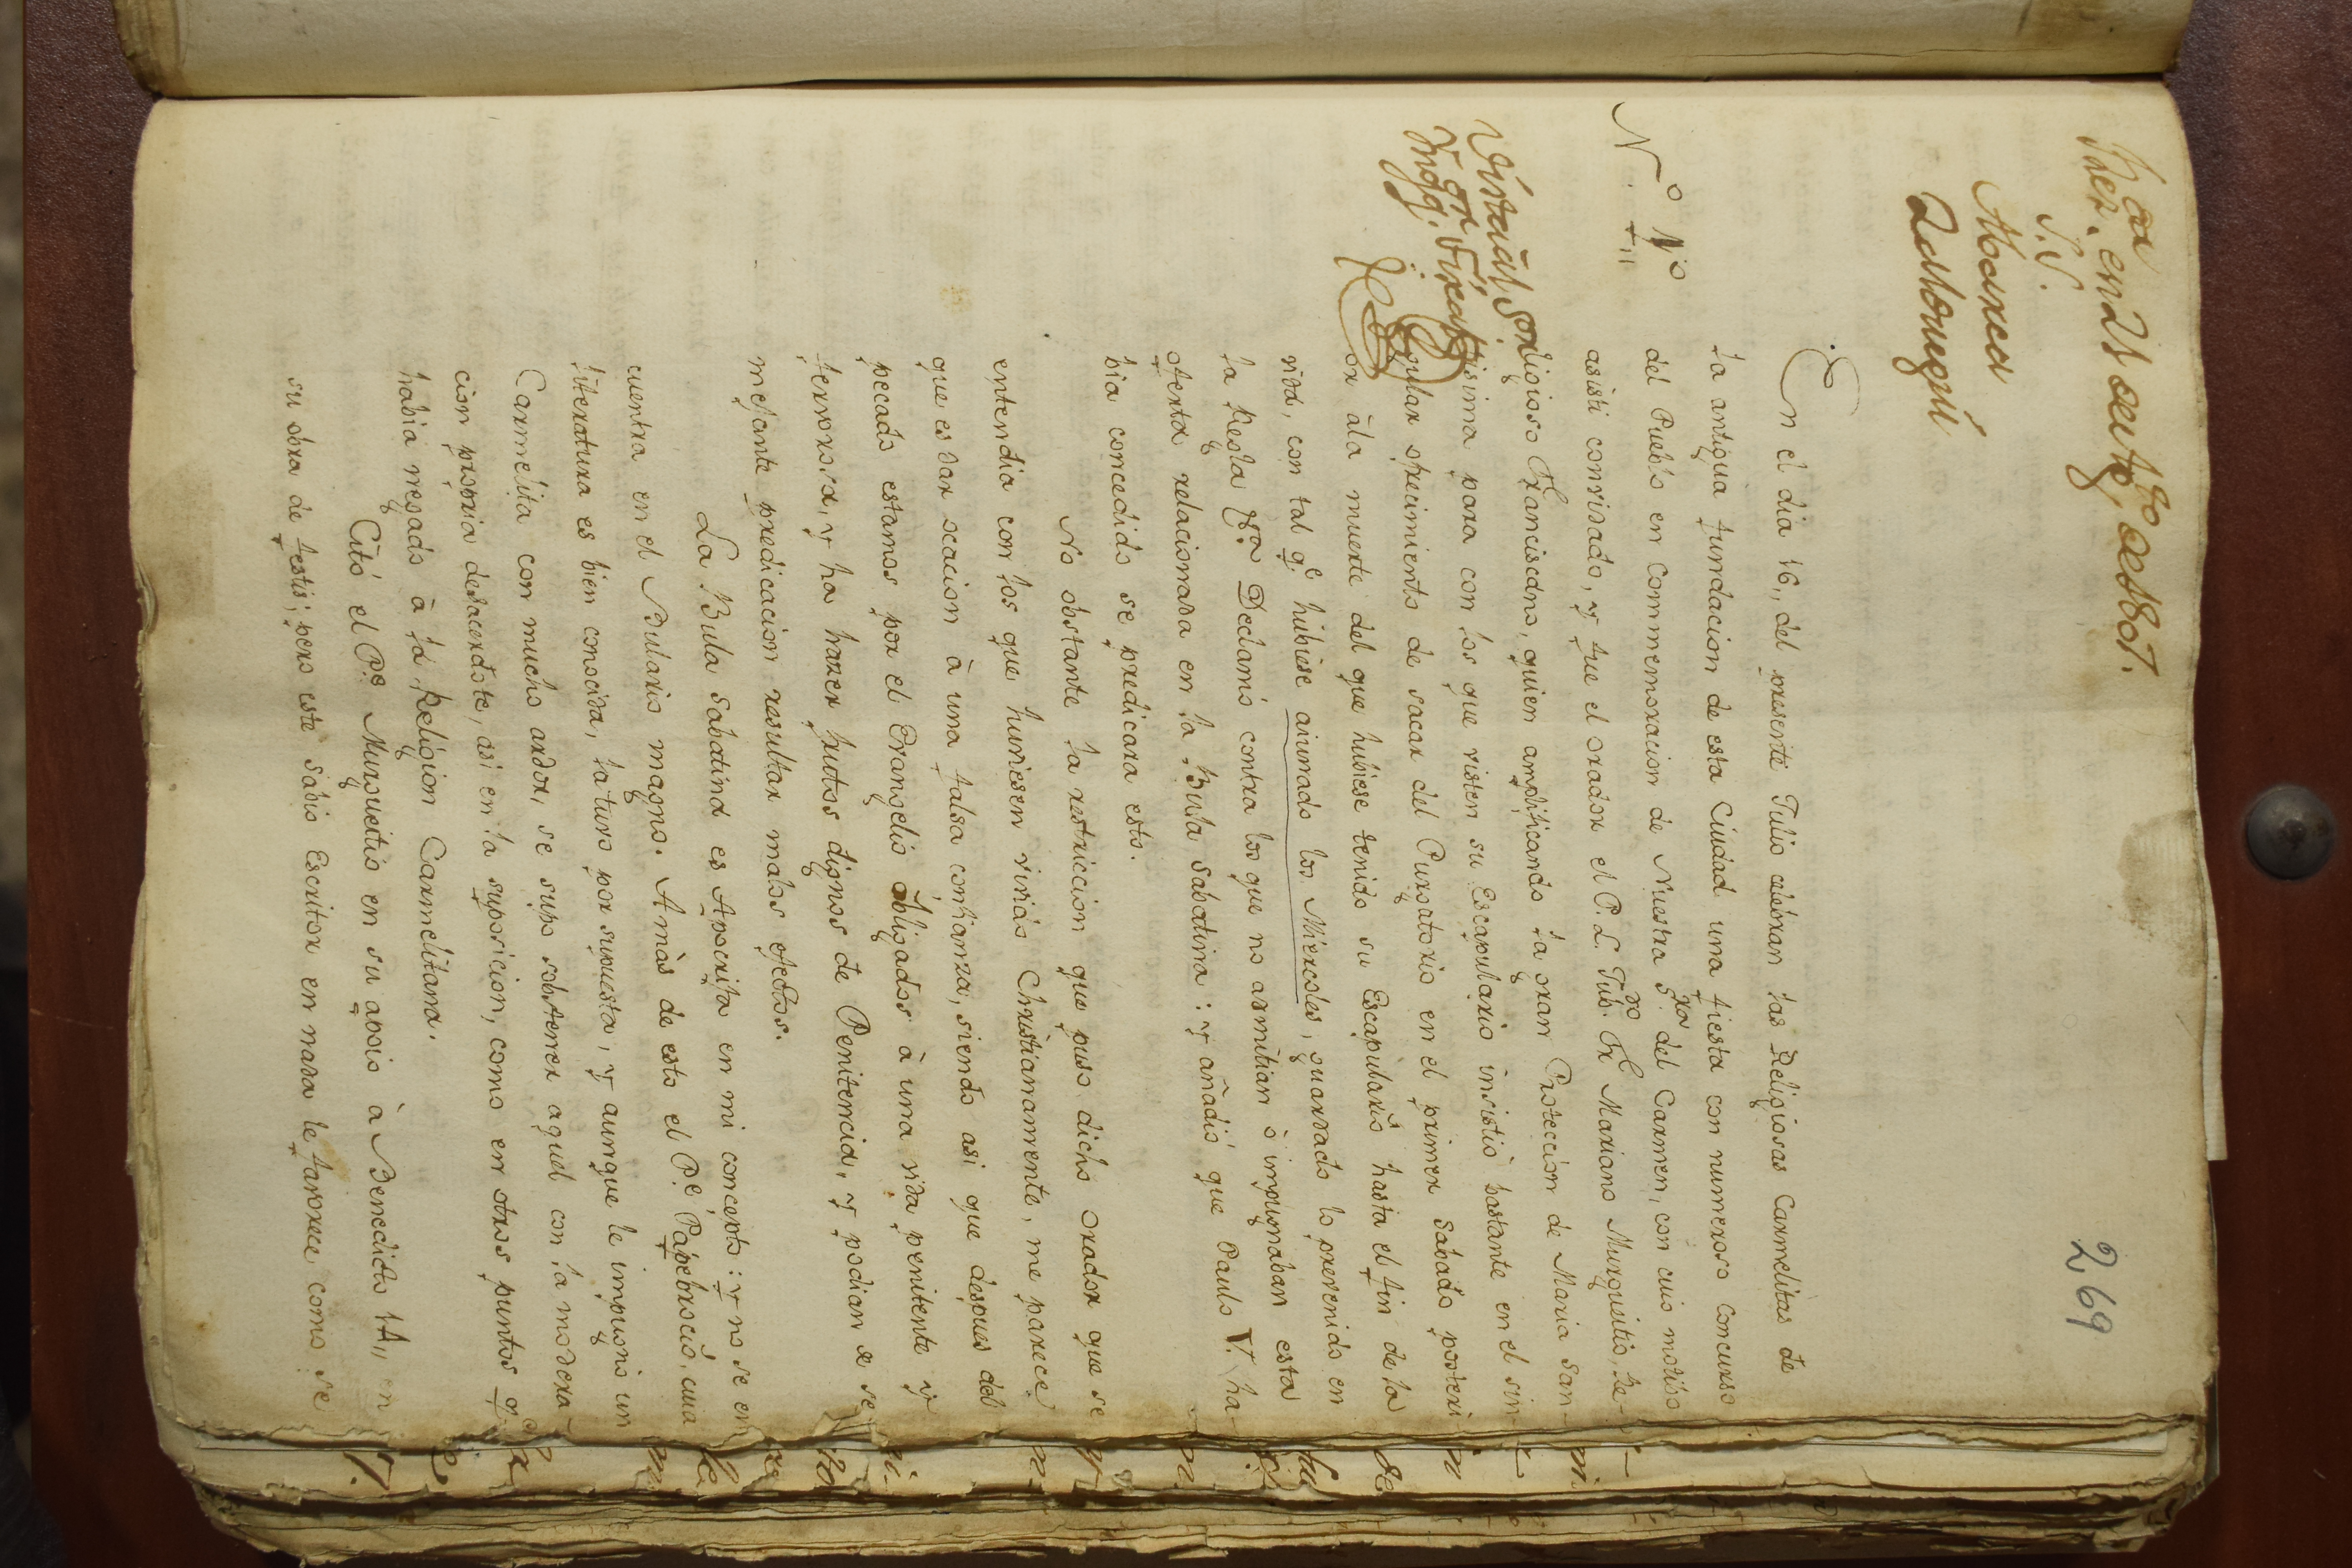 269
S. V.
Abarca
Zalduegui
N.º 1º
En el dia 16,, del presente Julio celebran las Religiosas Carmelitas de
la antigua fundacion de esta Ciudad una fiesta con numeroso concurso
del Pueblo en Commemoracion de Nuestra S.ra del Carmen, con cuio motibo
asisti convidado, y fue el orador el P. L. Jub.do Fr Mariano Murgueitio, Re-
ligioso Franciscano, quien amplificando la gran Proteccion de Maria san-
tisima para con los que visten su Escapulario insistiò bastante en el sin-
gular ofrecimiento de sacar del Purgatorio en el primer Sabado posteri
or à la muerte del que hubiese tenido su Escapulario hasta el fin de la
vida, con tal q.e hubiese aiunado los Miercoles, guardado lo prevenido en
la Regla &.ra Declamó contra los que no admitian ò impugnaban esta
oferta relacionada en la Bula Sabatina: y añadió que Paulo V. ha-
bia concedido se predicara esto.
No obstante la restriccion que puso dicho orador que se
entendia con los que huviesen vivido Christianamente, me parece
que es dar ocacion à una falsa confianza, siendo asi que despues del
pecado estamos por el Evangelio obligados à una vida penitente y
fervorosa, y ha hazer frutos dignos de Penitencia, y podian de se
mejante predicacion resultar malos efectos.
La Bula Sabatina es Apocrifa en mi concepto: y no se en
cuentra en el Bulario magno. Amàs de esto el P.e Papebrocio, cuia
literatura es bien conocida, la tuvo por supuesta, y aunque le impugnó un
Carmelita con mucho ardor, se supo sobstener aquel con la modera-
cion propria de sacerdote, asi en la suposicion, como en otros puntos q.e
habia negado à la Religion Carmelitana.
Citó el P.e Murgueitio en su apoio à Benedicto 14,, en
su obra de festis; pero este Sabio Escritor en nada le favorece como se